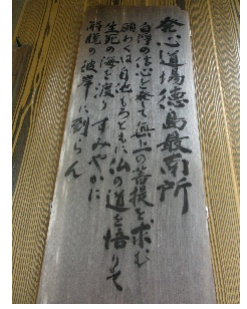 発心道場徳島最南所
白浄の信心を発て無上の菩提を求む
願わくは自他もろともに仏の道を悟りて
生死の海を渡りすみやかに
解脱の彼岸に到らん